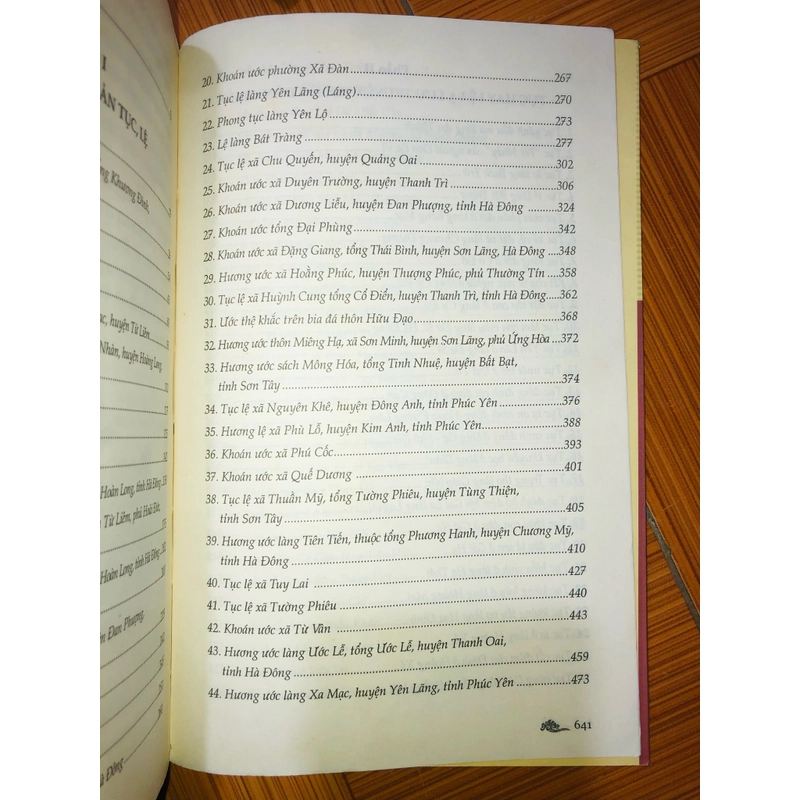 I
ÁN TỤC, LỆ
ng Khương Đình,
ạc, huyện Từ Liêm,
Nhân, huyện Hoàng Long,
Hoàn Long, tỉnh Hà Đông
Từ Liêm, phủ Hoài Đức,
Hoàn Long, tỉnh Hà Đông
ện Đan Phượng,
à Đông
20. Khoán ước phường Xã Đàn 267
21. Tục lệ làng Yên Lãng (Láng) 270
22. Phong tục làng Yên Lộ 273
23. Lệ làng Bát Tràng 277
24. Tục lệ xã Chu Quyến, huyện Quảng Oai 302
25. Khoán ước xã Duyên Trường, huyện Thanh Trì 306
26. Khoán ước xã Dương Liễu, huyện Đan Phượng, tỉnh Hà Đông 324
27. Khoán ước tổng Đại Phùng 342
28. Khoán ước xã Đặng Giang, tổng Thái Bình, huyện Sơn Lãng, Hà Đông 348
29. Hương ước xã Hoằng Phúc, huyện Thượng Phúc, phủ Thường Tín 358
30. Tục lệ xã Huỳnh Cung tổng Cổ Điển, huyện Thanh Trì, tỉnh Hà Đông 362
31. Ước thệ khắc trên bia đá thôn Hữu Đạo 368
32. Hương ước thôn Miêng Hạ, xã Sơn Minh, huyện Sơn Lãng, phủ Ứng Hòa 372
33. Hương ước sách Mông Hóa, tổng Tinh Nhuệ, huyện Bất Bạt,
tỉnh Sơn Tây 374
34. Tục lệ xã Nguyên Khê, huyện Đông Anh, tỉnh Phúc Yên 376
35. Hương lệ xã Phù Lỗ, huyện Kim Anh, tỉnh Phúc Yên 388
36. Khoán ước xã Phú Cốc 393
37. Khoán ước xã Quế Dương 401
38. Tục lệ xã Thuần Mỹ, tổng Tường Phiêu, huyện Tùng Thiện,
tỉnh Sơn Tây 405
39. Hương ước làng Tiên Tiến, thuộc tổng Phương Hanh, huyện Chương Mỹ,
tỉnh Hà Đông 410
40. Tục lệ xã Tuy Lai 427
41. Tục lệ xã Tường Phiêu 440
42. Khoán ước xã Từ Vân 443
43. Hương ước làng Ước Lễ, tổng Ước Lễ, huyện Thanh Oai,
tỉnh Hà Đông 459
44. Hương ước làng Xa Mạc, huyện Yên Lãng, tỉnh Phúc Yên 473
641